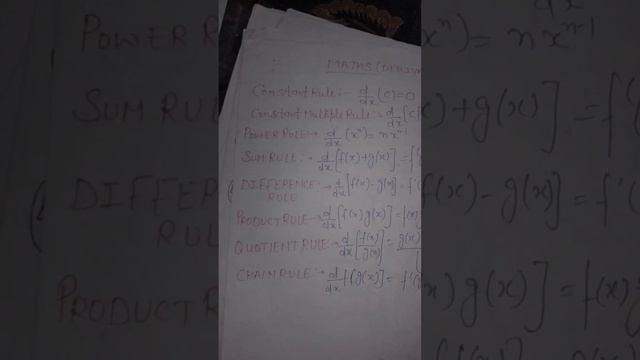 MATHS (DERIV
Constant Rule:- d/dx (C)=0
Constant Multiple Rule:- d/dx [C
POWER RULE:→ d/dx (xⁿ)= nxⁿ⁻¹
SUM RULE:→ d/dx [f(x)+g(x)] = f'(
DIFFERENCE RULE → d/dx [f(x)-g(x)] = f'(
PRODUCT RULE→ d/dx [f(x) g(x)] = f(x)
QUOTIENT RULE:→ d/dx [f(x)/g(x)] = g(x)
CHAIN RULE:→ d/dx f[g(x)] = f'(g
POWER R
SUM RULE
DIFFEREN
RUL
PRODUCT R
dx
xⁿ)= nxⁿ⁻¹
)+g(x)] = f'(
f(x)-g(x)] = f'(
x) g(x)] = f(x)